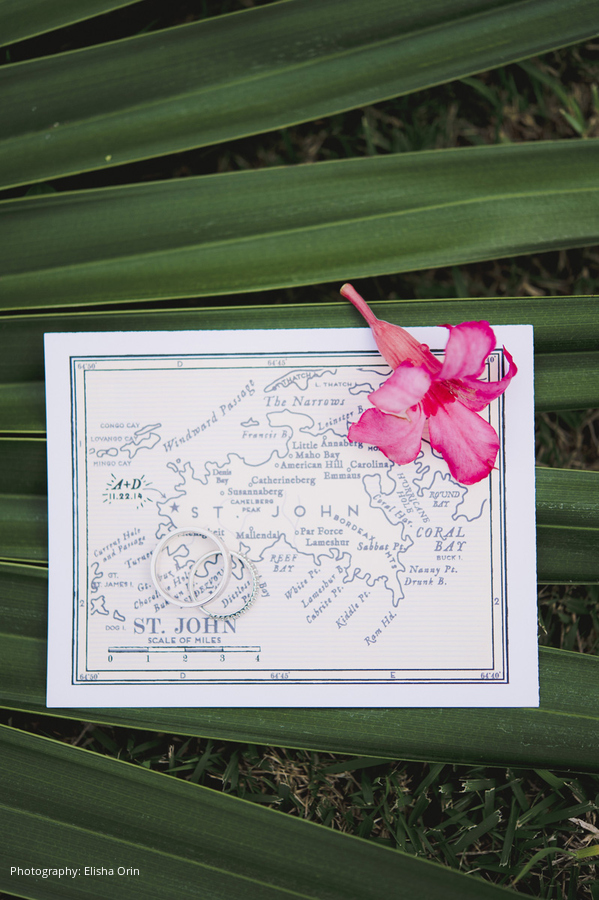 64'50'
D
64'45'
THATCH I.
L. THATCH I.
The Narrows
Windward Passage
Leinster B.
CONGO CAY
LOVANGO CAY
MINGO CAY
Francis B.
Little Annaberg
Maho Bay
American Hill
Carolina
Emmaus
1
Denis Bay
Catherineberg
Susannaberg
CAMELBERG
PEAK
A+D
11.22.14
HURRICANE
HOLE
ROUND
BAY
ST. JOHN
BORDEAUX
Coral Har.
CORAL
BAY
Current Hole
and Passage
Turner
Mallendal
Par Force
Lameshur
Sabbat Pt.
BUCK I.
REEF
BAY
Nanny Pt.
Drunk B.
ST.
JAMES I.
White Pt.
Lameshur B.
Cabrite Pt.
Kiddle Pt.
Ram Hd.
District
2
2
DOG I.
ST. JOHN
SCALE OF MILES
0 1 2 3 4
64'50'
D
64'45'
E
64'40'
Photography: Elisha Orin